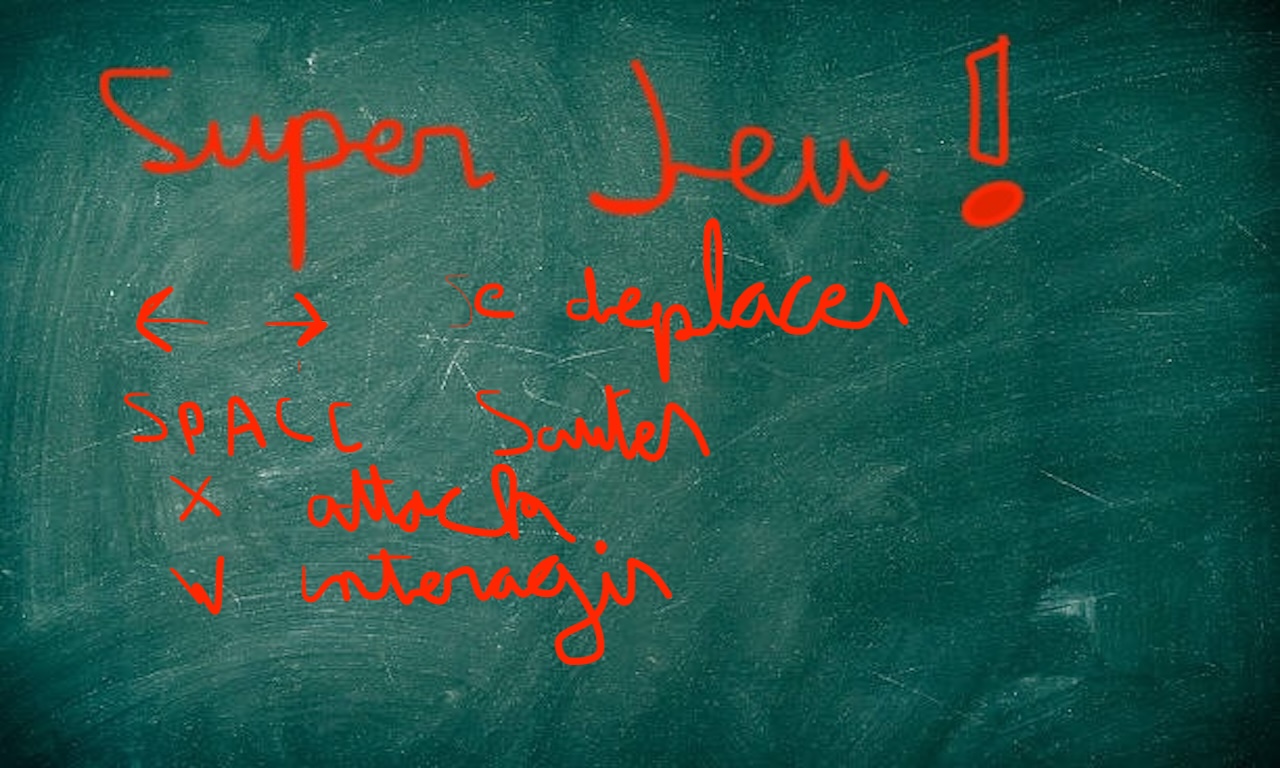 Super Jeu !
← → se deplacer
SPACE Sauter
X attack
V interagir